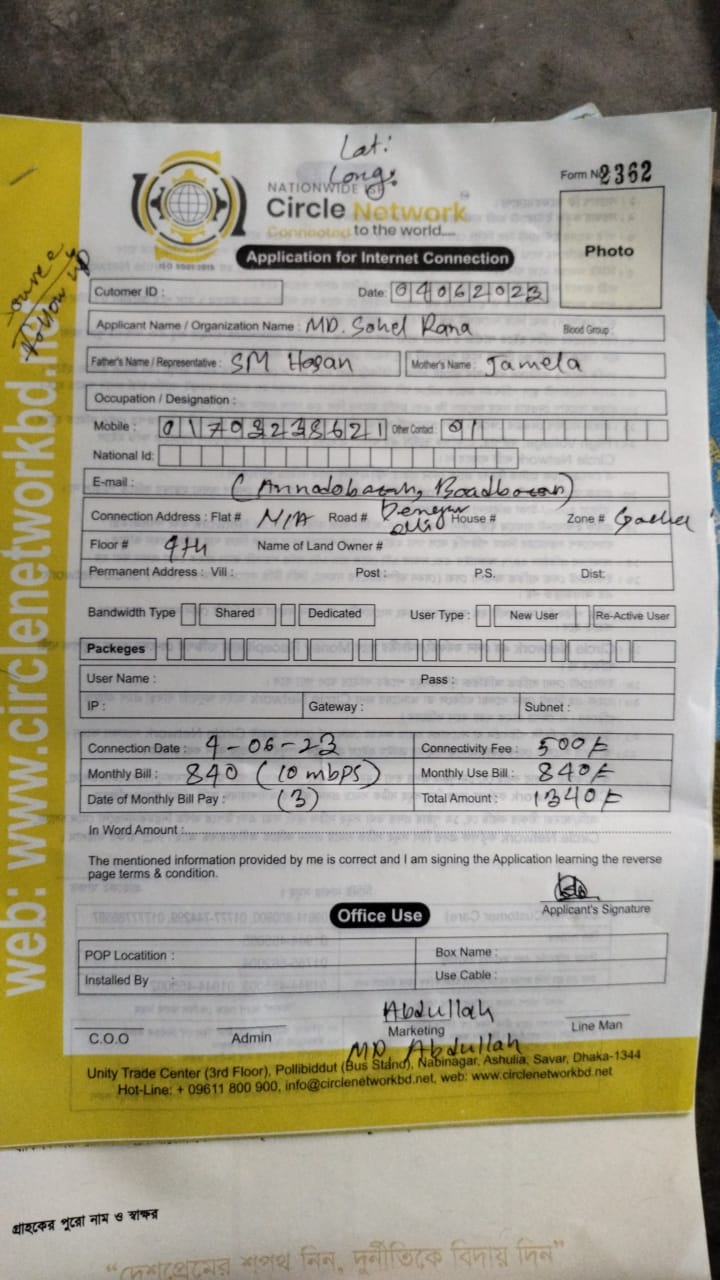 Lat:
Long:
NATIONWIDE ISP
Form No 2362
Circle Network
Connected to the world....
ISO 9001:2015
Photo
Application for Internet Connection
Follow up
Cutomer ID :
Date: 04062023
Applicant Name / Organization Name : MD. Sohel Rana Blood Group :
Father's Name / Representative : SM Hasan Mother's Name : Jamela
Occupation / Designation :
Mobile : Other Contact : 01
National Id:
E-mail :
Connection Address : Flat # N/A Road # House # Zone #
Floor # 4th Name of Land Owner #
Permanent Address : Vill : Post : P.S. Dist:
Bandwidth Type Shared Dedicated User Type : New User Re-Active User
Packeges
User Name : Pass :
IP : Gateway : Subnet :
Connection Date : 4-06-23 Connectivity Fee : 500/=
Monthly Bill : 840 (10 mbps) Monthly Use Bill : 840/=
Date of Monthly Bill Pay : (3) Total Amount : 1340/=
In Word Amount :
The mentioned information provided by me is correct and I am signing the Application learning the reverse
page terms & condition.
Applicant's Signature
Office Use
POP Locatition : Box Name :
Installed By : Use Cable :
Abdullah
C.O.O Admin Marketing Line Man
MD. Abdullah
Unity Trade Center (3rd Floor), Pollibiddut (Bus Stand), Nabinagar, Ashulia, Savar, Dhaka-1344
Hot-Line: + 09611 800 900, info@circlenetworkbd.net, web: www.circlenetworkbd.net
web: www.circlenetworkbd.net
গ্রাহকের পুরো নাম ও স্বাক্ষর
“দেশপ্রেমের শপথ নিন, দুর্নীতিকে বিদায় দিন”